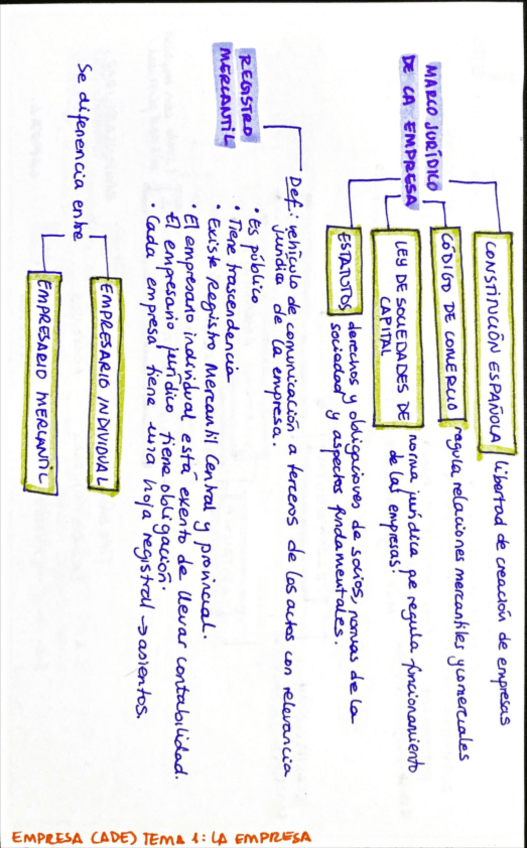 MARCO JURÍDICO
DE LA EMPRESA
CONSTITUCIÓN ESPAÑOLA libertad de creación de empresas
CÓDIGO DE COMERCIO regula relaciones mercantiles y comerciales
LEY DE SOCIEDADES DE
CAPITAL
norma jurídica que regula funcionamiento
de las empresas.
ESTATUTOS derechos y obligaciones de socios, normas de la
sociedad y aspectos fundamentales.
REGISTRO
MERCANTIL
Def: vehículo de comunicación a terceros de los actos con relevancia
jurídica de la empresa.
• Es público
• Tiene trascendencia
• Existe Registro Mercantil Central y provincial.
• El empresario individual está exento de llevar contabilidad.
El empresario jurídico tiene obligación.
• Cada empresa tiene una hoja registral → asientos.
Se diferencia entre
EMPRESARIO INDIVIDUAL
EMPRESARIO MERCANTIL
EMPRESA (ADE) TEMA 1: LA EMPRESA